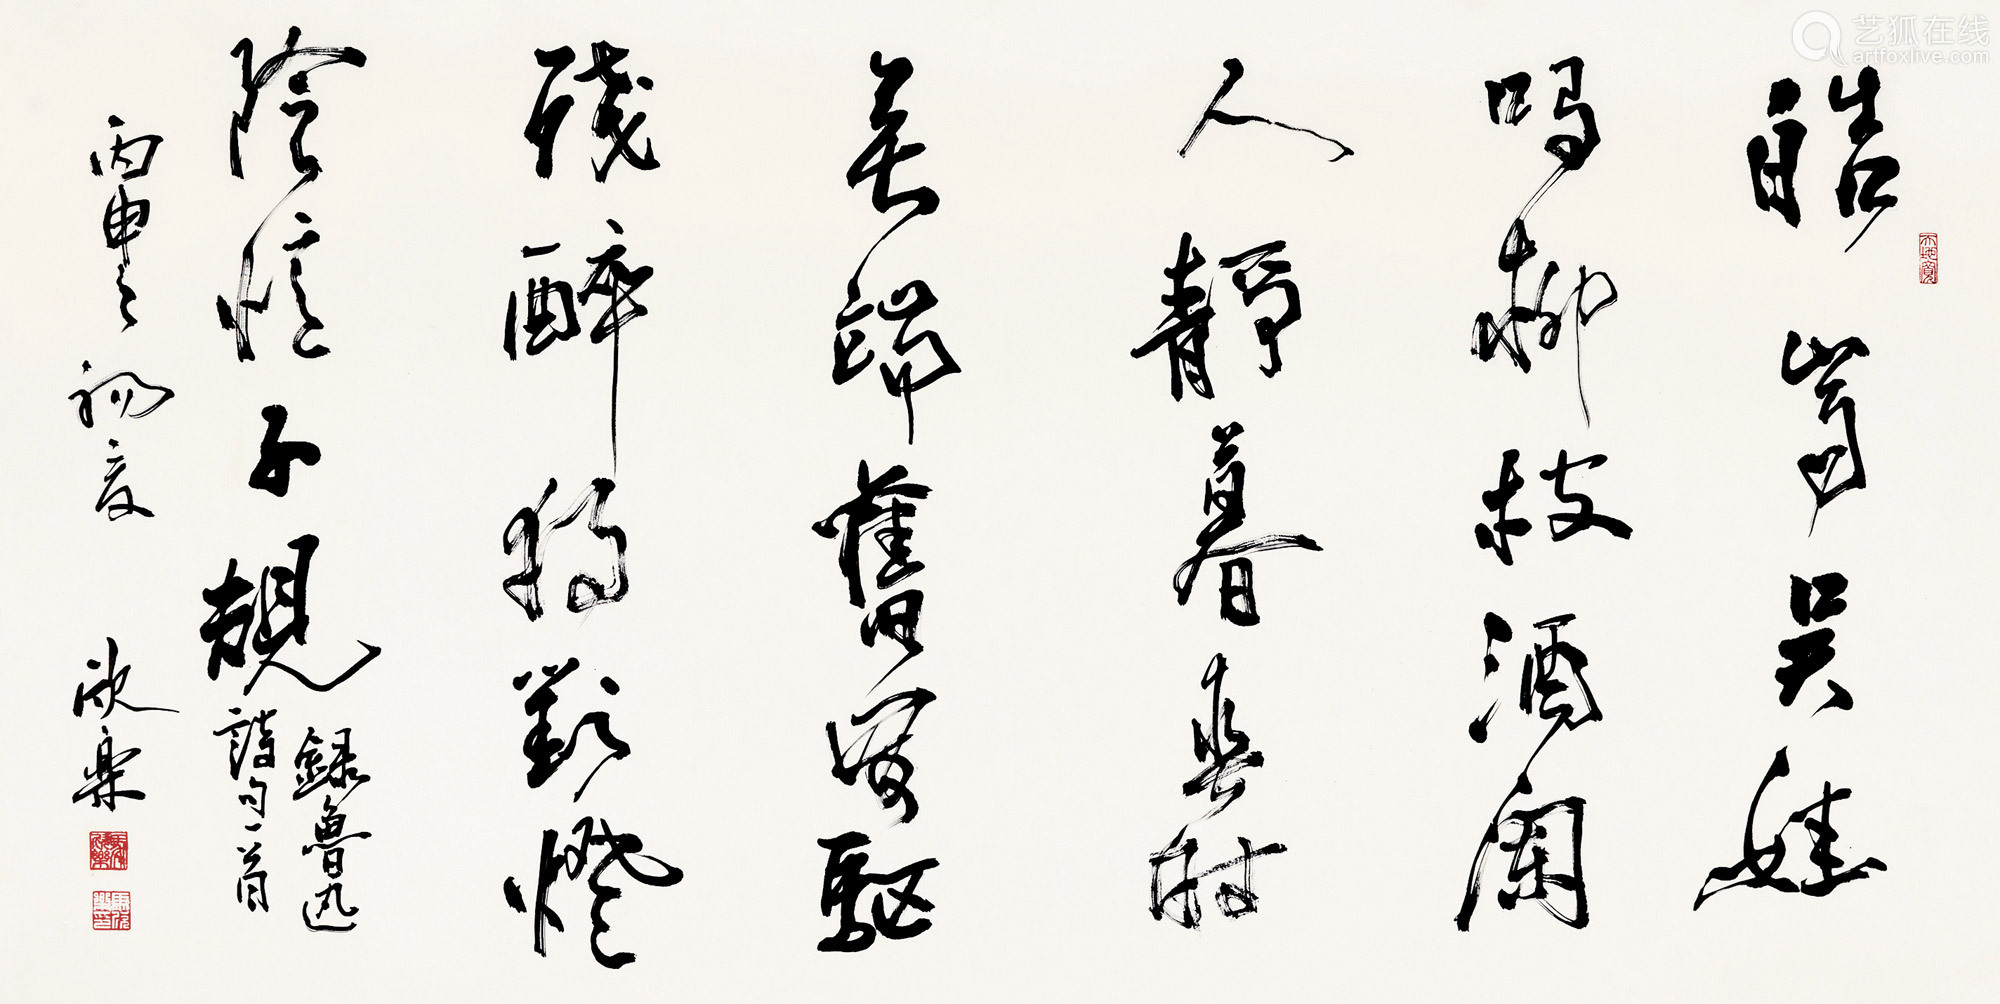 皓齿吴娃
唱柳枝酒阑
人静暮春时
无端旧梦驱
残醉独对灯
阴忆子规
录鲁迅
诗句一首
丙申之初夏
欣乐
艺狐在线
artfoxlive.com